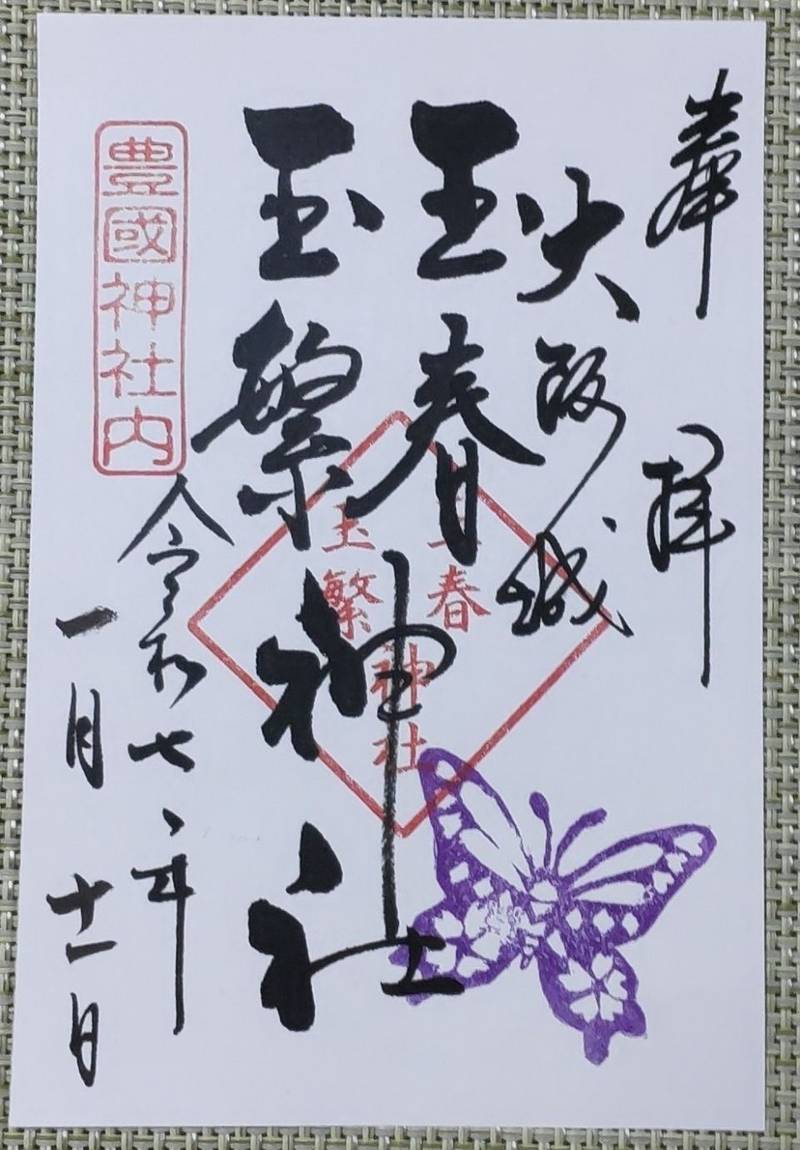 奉拝
大阪城
王春
玉繁
神社
令和七年
一月十一日
豊國神社内
春
玉繁
神社